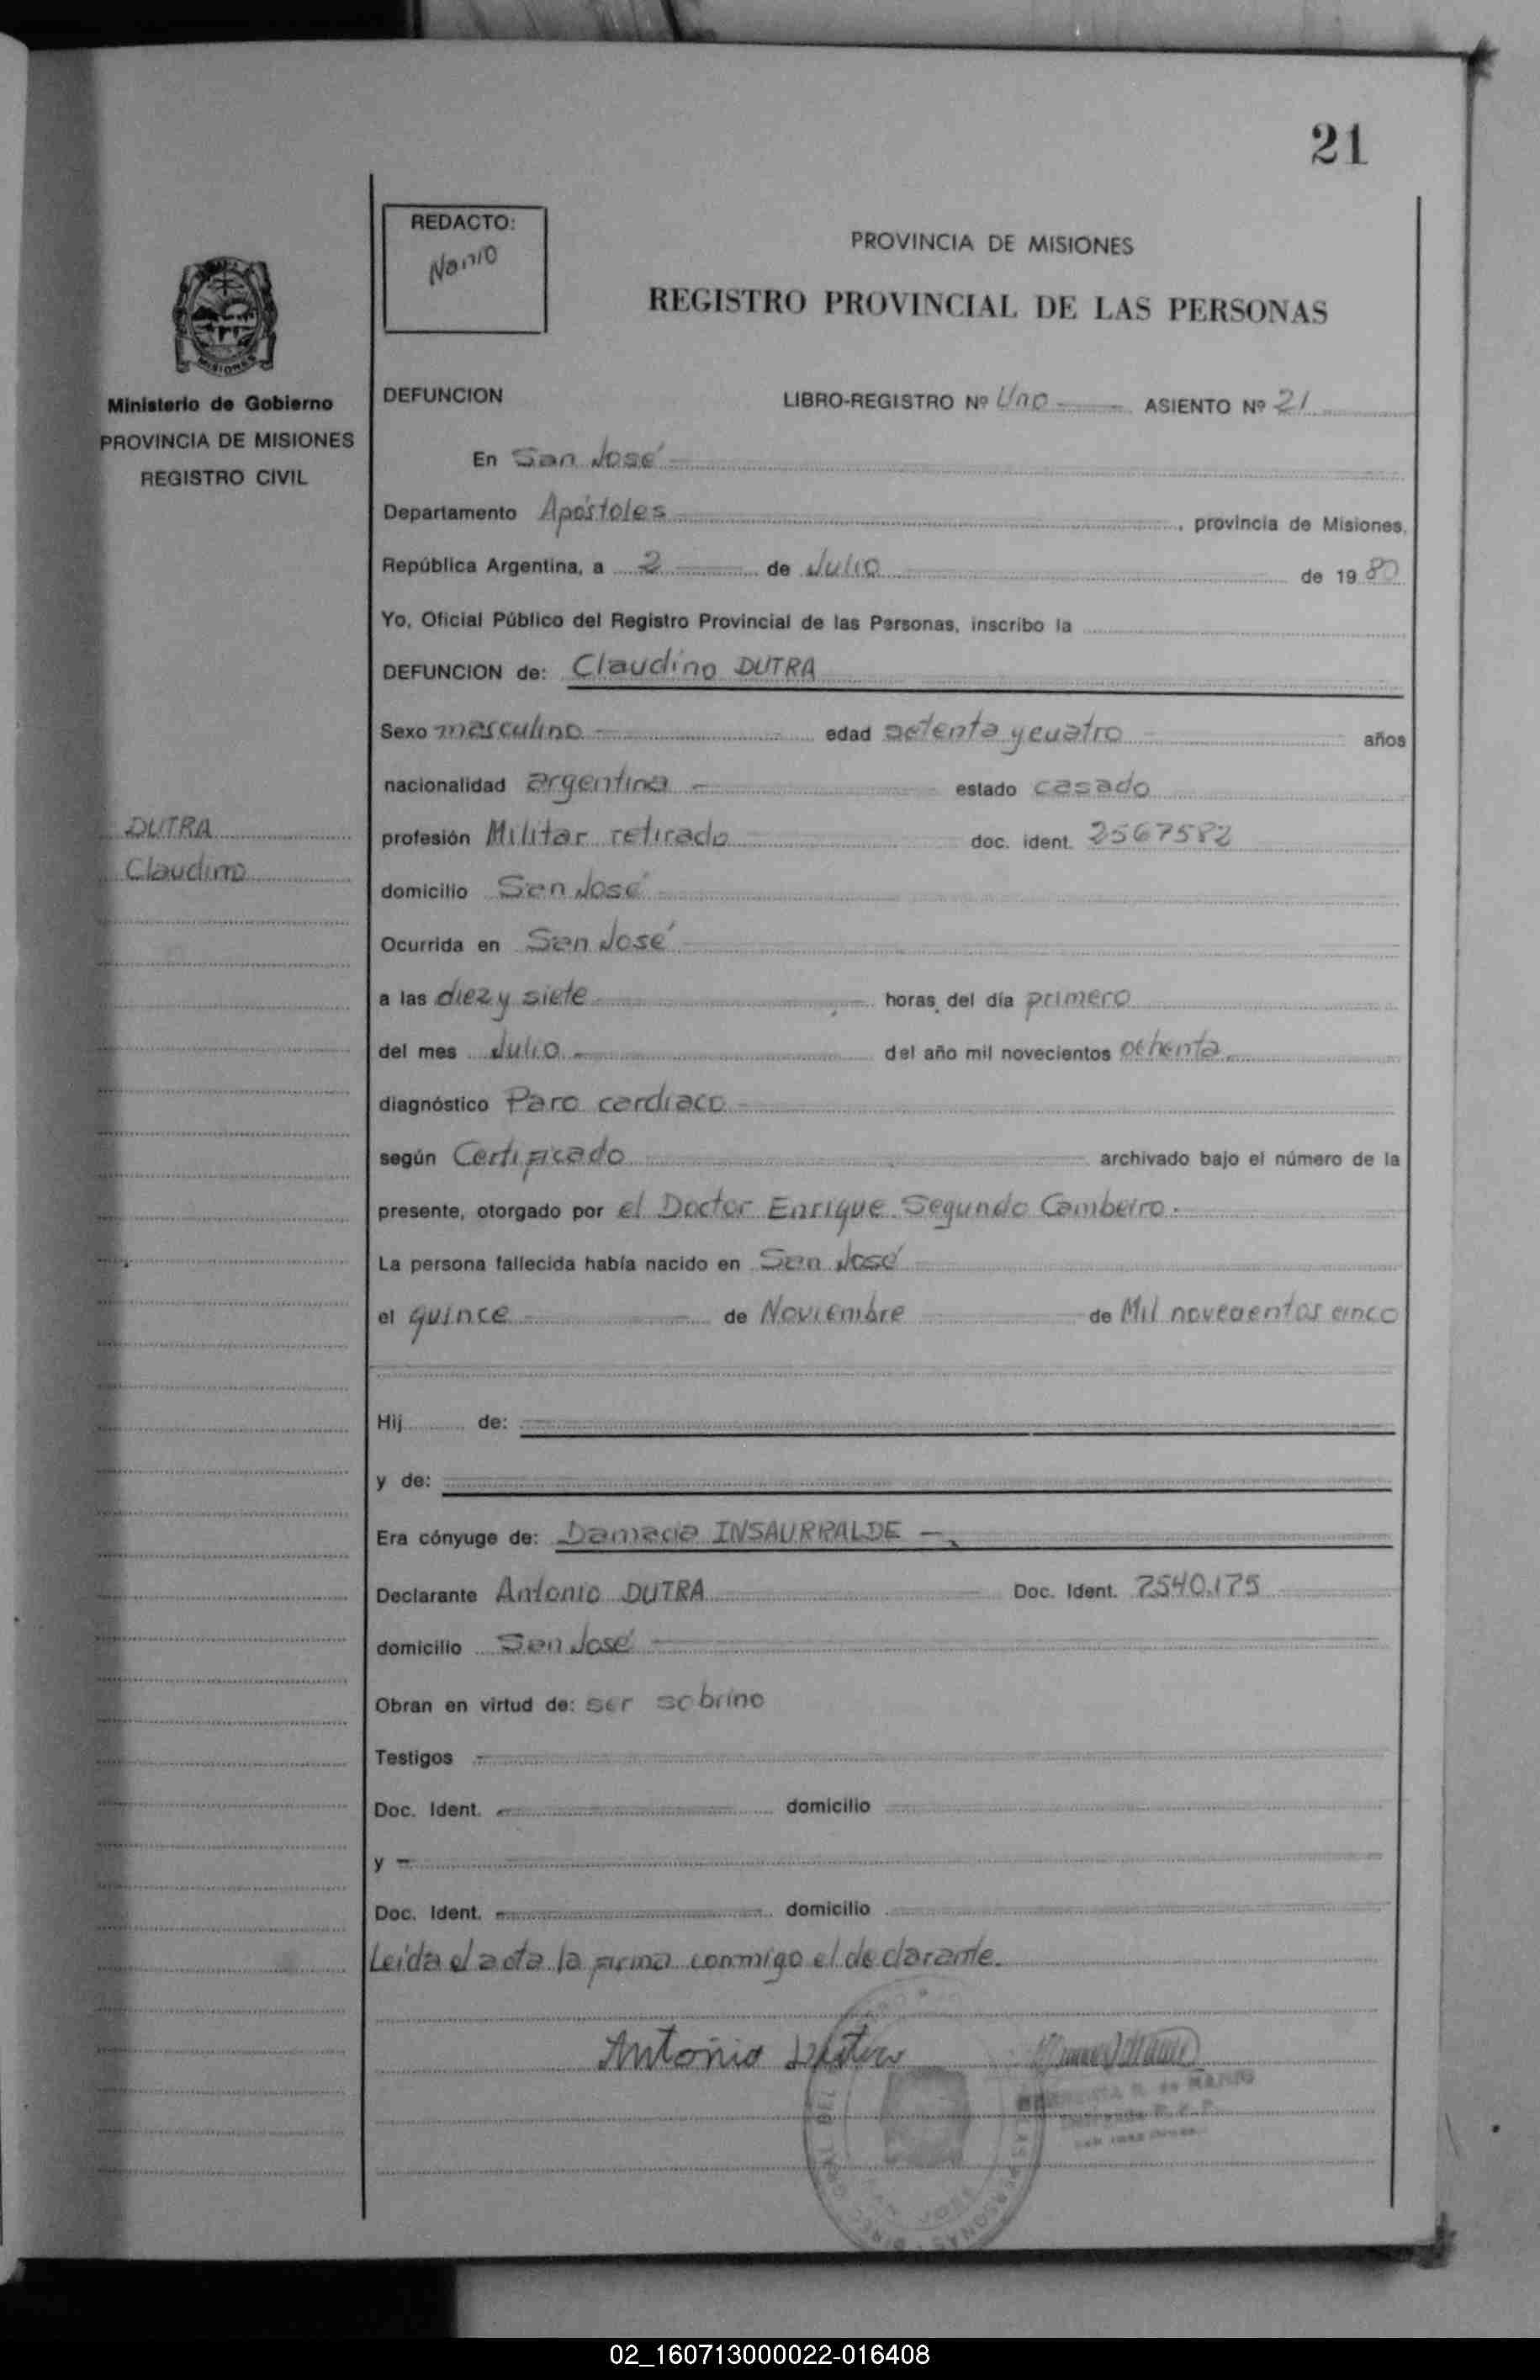 21
REDACTO:
PROVINCIA DE MISIONES
REGISTRO PROVINCIAL DE LAS PERSONAS
MISIONES
Ministerio de Gobierno
PROVINCIA DE MISIONES
REGISTRO CIVIL
DEFUNCION LIBRO-REGISTRO Nº Uno ASIENTO Nº 21
En San José
Departamento Apóstoles, provincia de Misiones,
República Argentina, a 2 de Julio de 1980
Yo, Oficial Público del Registro Provincial de las Personas, inscribo la
DEFUNCION de: Claudino DUTRA
Sexo masculino edad setenta y cuatro años
nacionalidad argentina estado casado
DUTRA
Claudino
profesión Militar retirado doc. ident. 2567582
domicilio San José
Ocurrida en San José
a las diez y siete horas del día primero
del mes Julio del año mil novecientos ochenta
diagnóstico Paro cardiaco
según Certificado archivado bajo el número de la
presente, otorgado por el Doctor Enrique Segundo Cambeiro.
La persona fallecida había nacido en San José
el quince de Noviembre de Mil novecientos cinco
Hij de:
y de:
Era cónyuge de: Damacia INSAURRALDE
Declarante Antonio DUTRA Doc. Ident. 7540.175
domicilio San José
Obran en virtud de: ser sobrino
Testigos
Doc. Ident. domicilio
y
Doc. Ident. domicilio
Leída el acta la firma conmigo el declarante.
Antonio Dutra
02_160713000022-016408